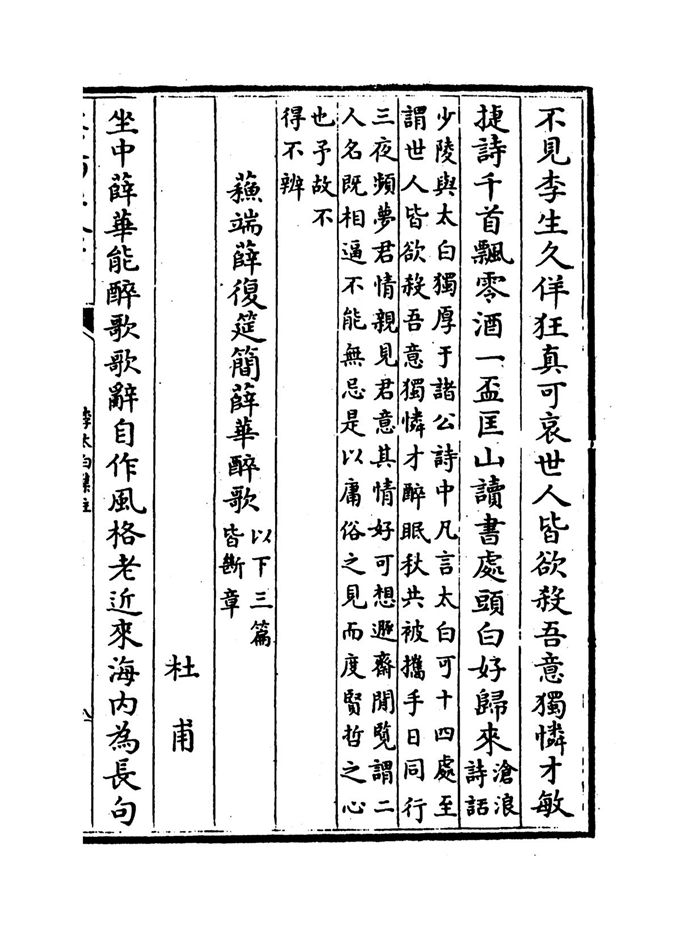 不見李生久佯狂真可哀世人皆欲殺吾意獨憐才敏
捷詩千首飄零酒一盃匡山讀書處頭白好歸來滄浪
詩話
少陵與太白獨厚于諸公詩中凡言太白可十四處至
謂世人皆欲殺吾意獨憐才醉眠秋共被攜手日同行
三夜頻夢君情親見君意其情好可想遯齋閒覽謂二
人名既相逼不能無忌是以庸俗之見而度賢哲之心
也予故不
得不辨
蘓端薛復筵簡薛華醉歌以下三篇
皆斷章
杜甫
坐中薛華能醉歌歌辭自作風格老近來海内為長句
李太白集註
八